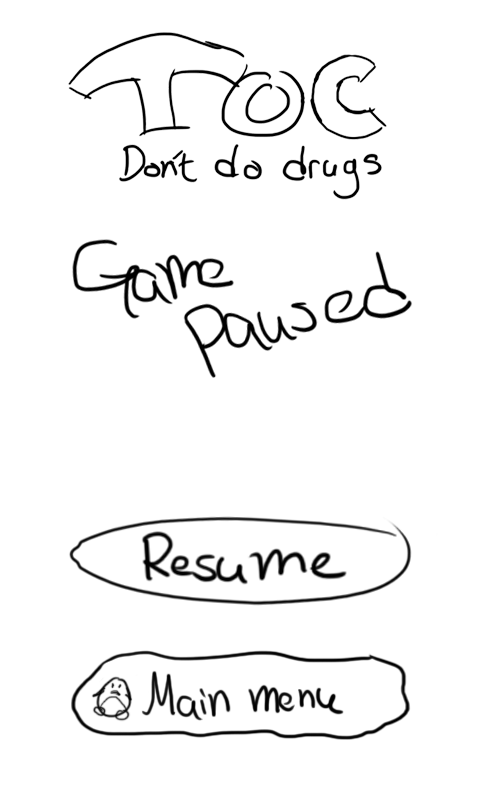 TOC
Don't do drugs
Game
paused
Resume
Main menu